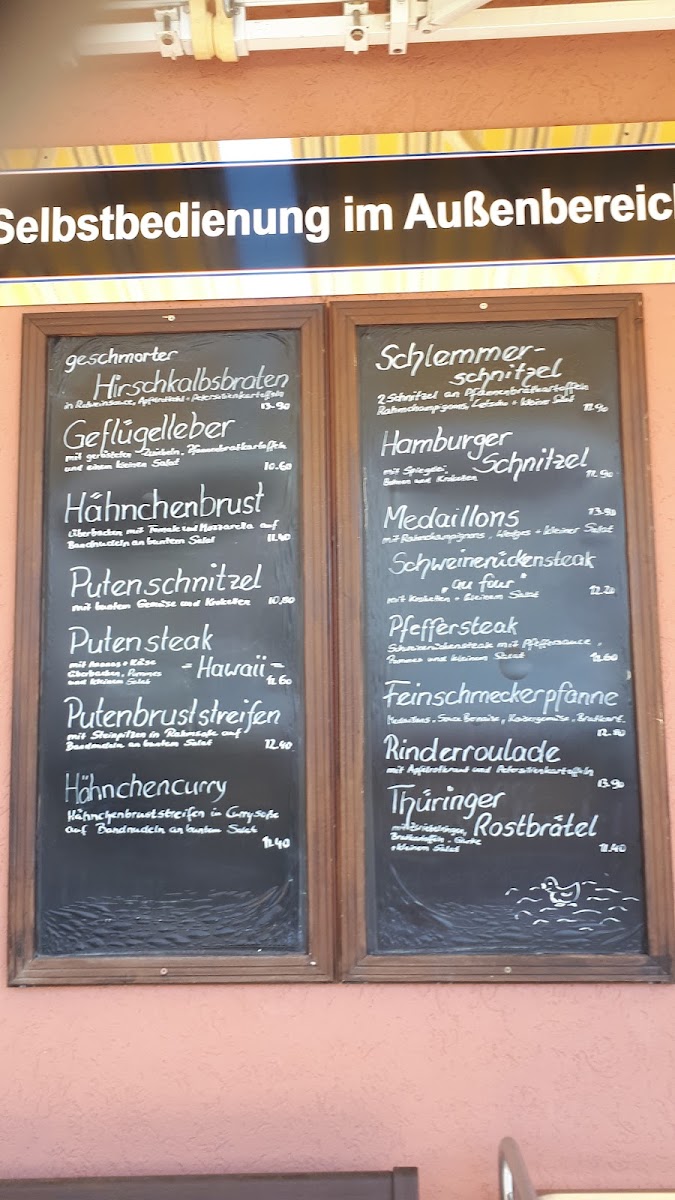 Selbstbedienung im Außenbereich
geschmorter
Hirschkalbsbraten
in Rotweinsauce, Apfelrotkohl + Petersilienkartoffeln
13.90
Geflügelleber
mit gerösteten Zwiebeln, Pfannenbratkartoffeln
und einem kleinen Salat
10.60
Hähnchenbrust
überbacken mit Tomate und Mozzarella auf
Bandnudeln an buntem Salat
11.40
Putenschnitzel
mit buntem Gemüse und Kroketten 10,80
Putensteak
mit Ananas + Käse
- Hawaii -
überbacken, Pommes
und kleinem Salat
11.60
Putenbruststreifen
mit Steinpilzen in Rahmsoße auf
Bandnudeln an buntem Salat
12.40
Hähnchencurry
Hähnchenbruststreifen in Currysoße
auf Bandnudeln an buntem Salat
11.40
Schlemmer-
schnitzel
2 Schnitzel an Pfannenbratkartoffeln
Rahmchampignons, Letscho + kleiner Salat
11.90
Hamburger
Schnitzel
mit Spiegelei,
Bohnen und Kroketten
11.90
Medaillons
13.90
mit Rahmchampignons, Wedges + kleiner Salat
Schweinerückensteak
"au four"
mit Kroketten + kleinem Salat
12.20
Pfeffersteak
Schweinerückensteak mit Pfeffersauce,
Pommes und kleinem Salat
11.60
Feinschmeckerpfanne
Medaillons, Sauce Bernaise, Kaisergemüse, Bratkart.
Rinderroulade
mit Apfelrotkraut und Petersilienkartoffeln
13.90
Thüringer
Rostbrätel
Bratkartoffeln, Gurke
+ kleinem Salat
11.40